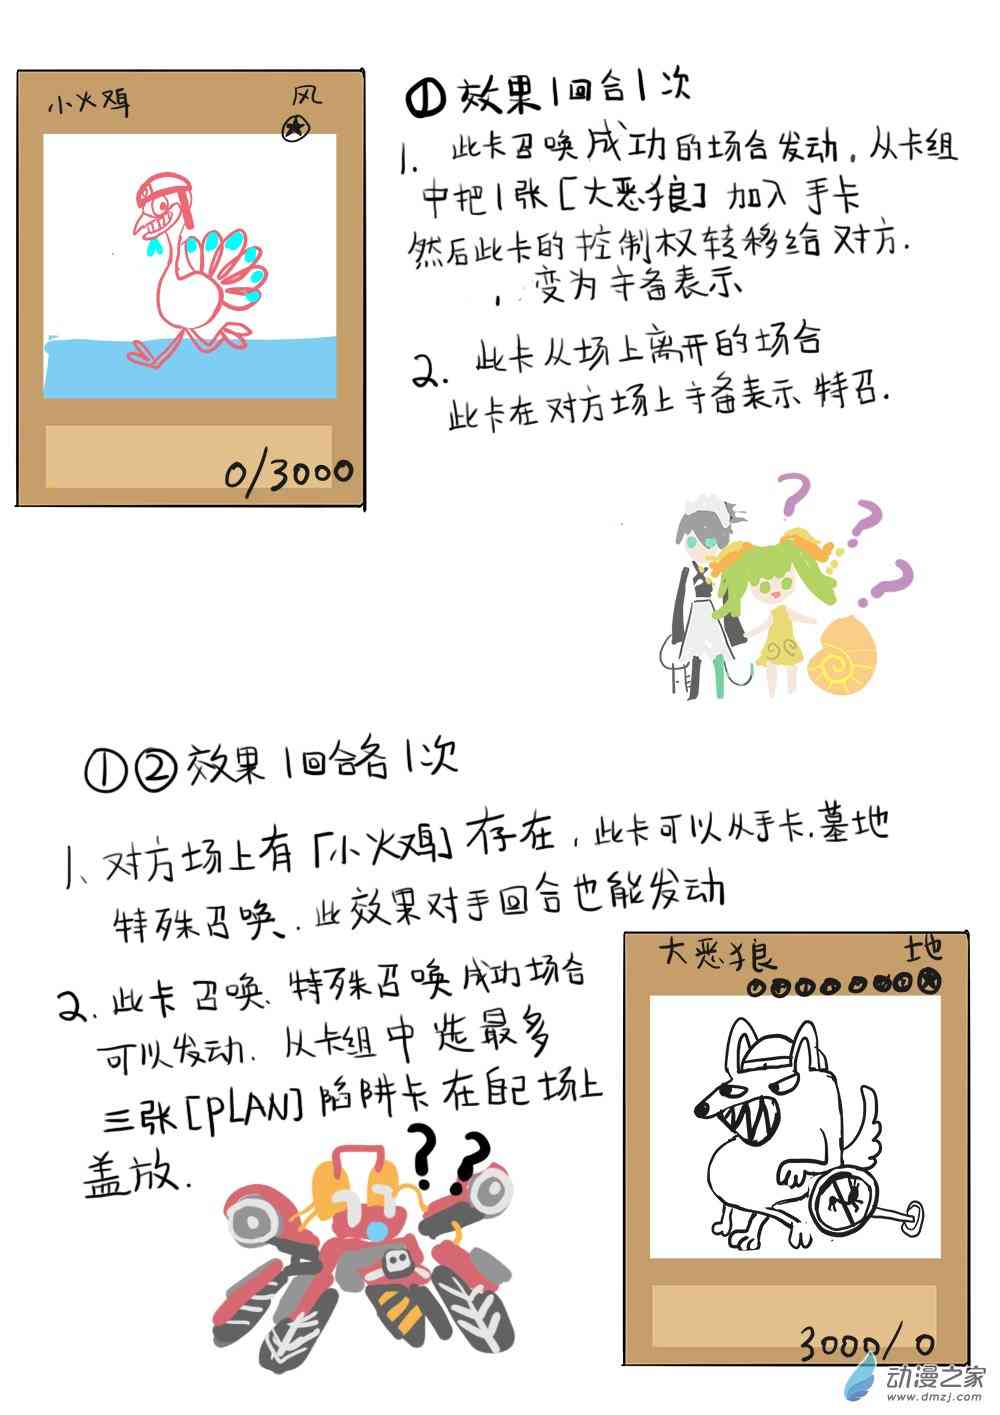 小火鸡
风
0/3000
① 效果1回合1次
1. 此卡召唤成功的场合发动,从卡组
中把1张[大恶狼]加入手卡
然后此卡的控制权转移给对方.
,变为守备表示
2. 此卡从场上离开的场合
此卡在对方场上守备表示特召.
? ? ?
①②效果1回合各1次
1、对方场上有「小火鸡」存在,此卡可以从手卡.墓地
特殊召唤.此效果对手回合也能发动
2. 此卡召唤、特殊召唤成功场合
可以发动.从卡组中选最多
三张[PLAN]陷阱卡在自己场上
盖放.
? ?
大恶狼
地
3000/0
动漫之家
www.dmzj.com